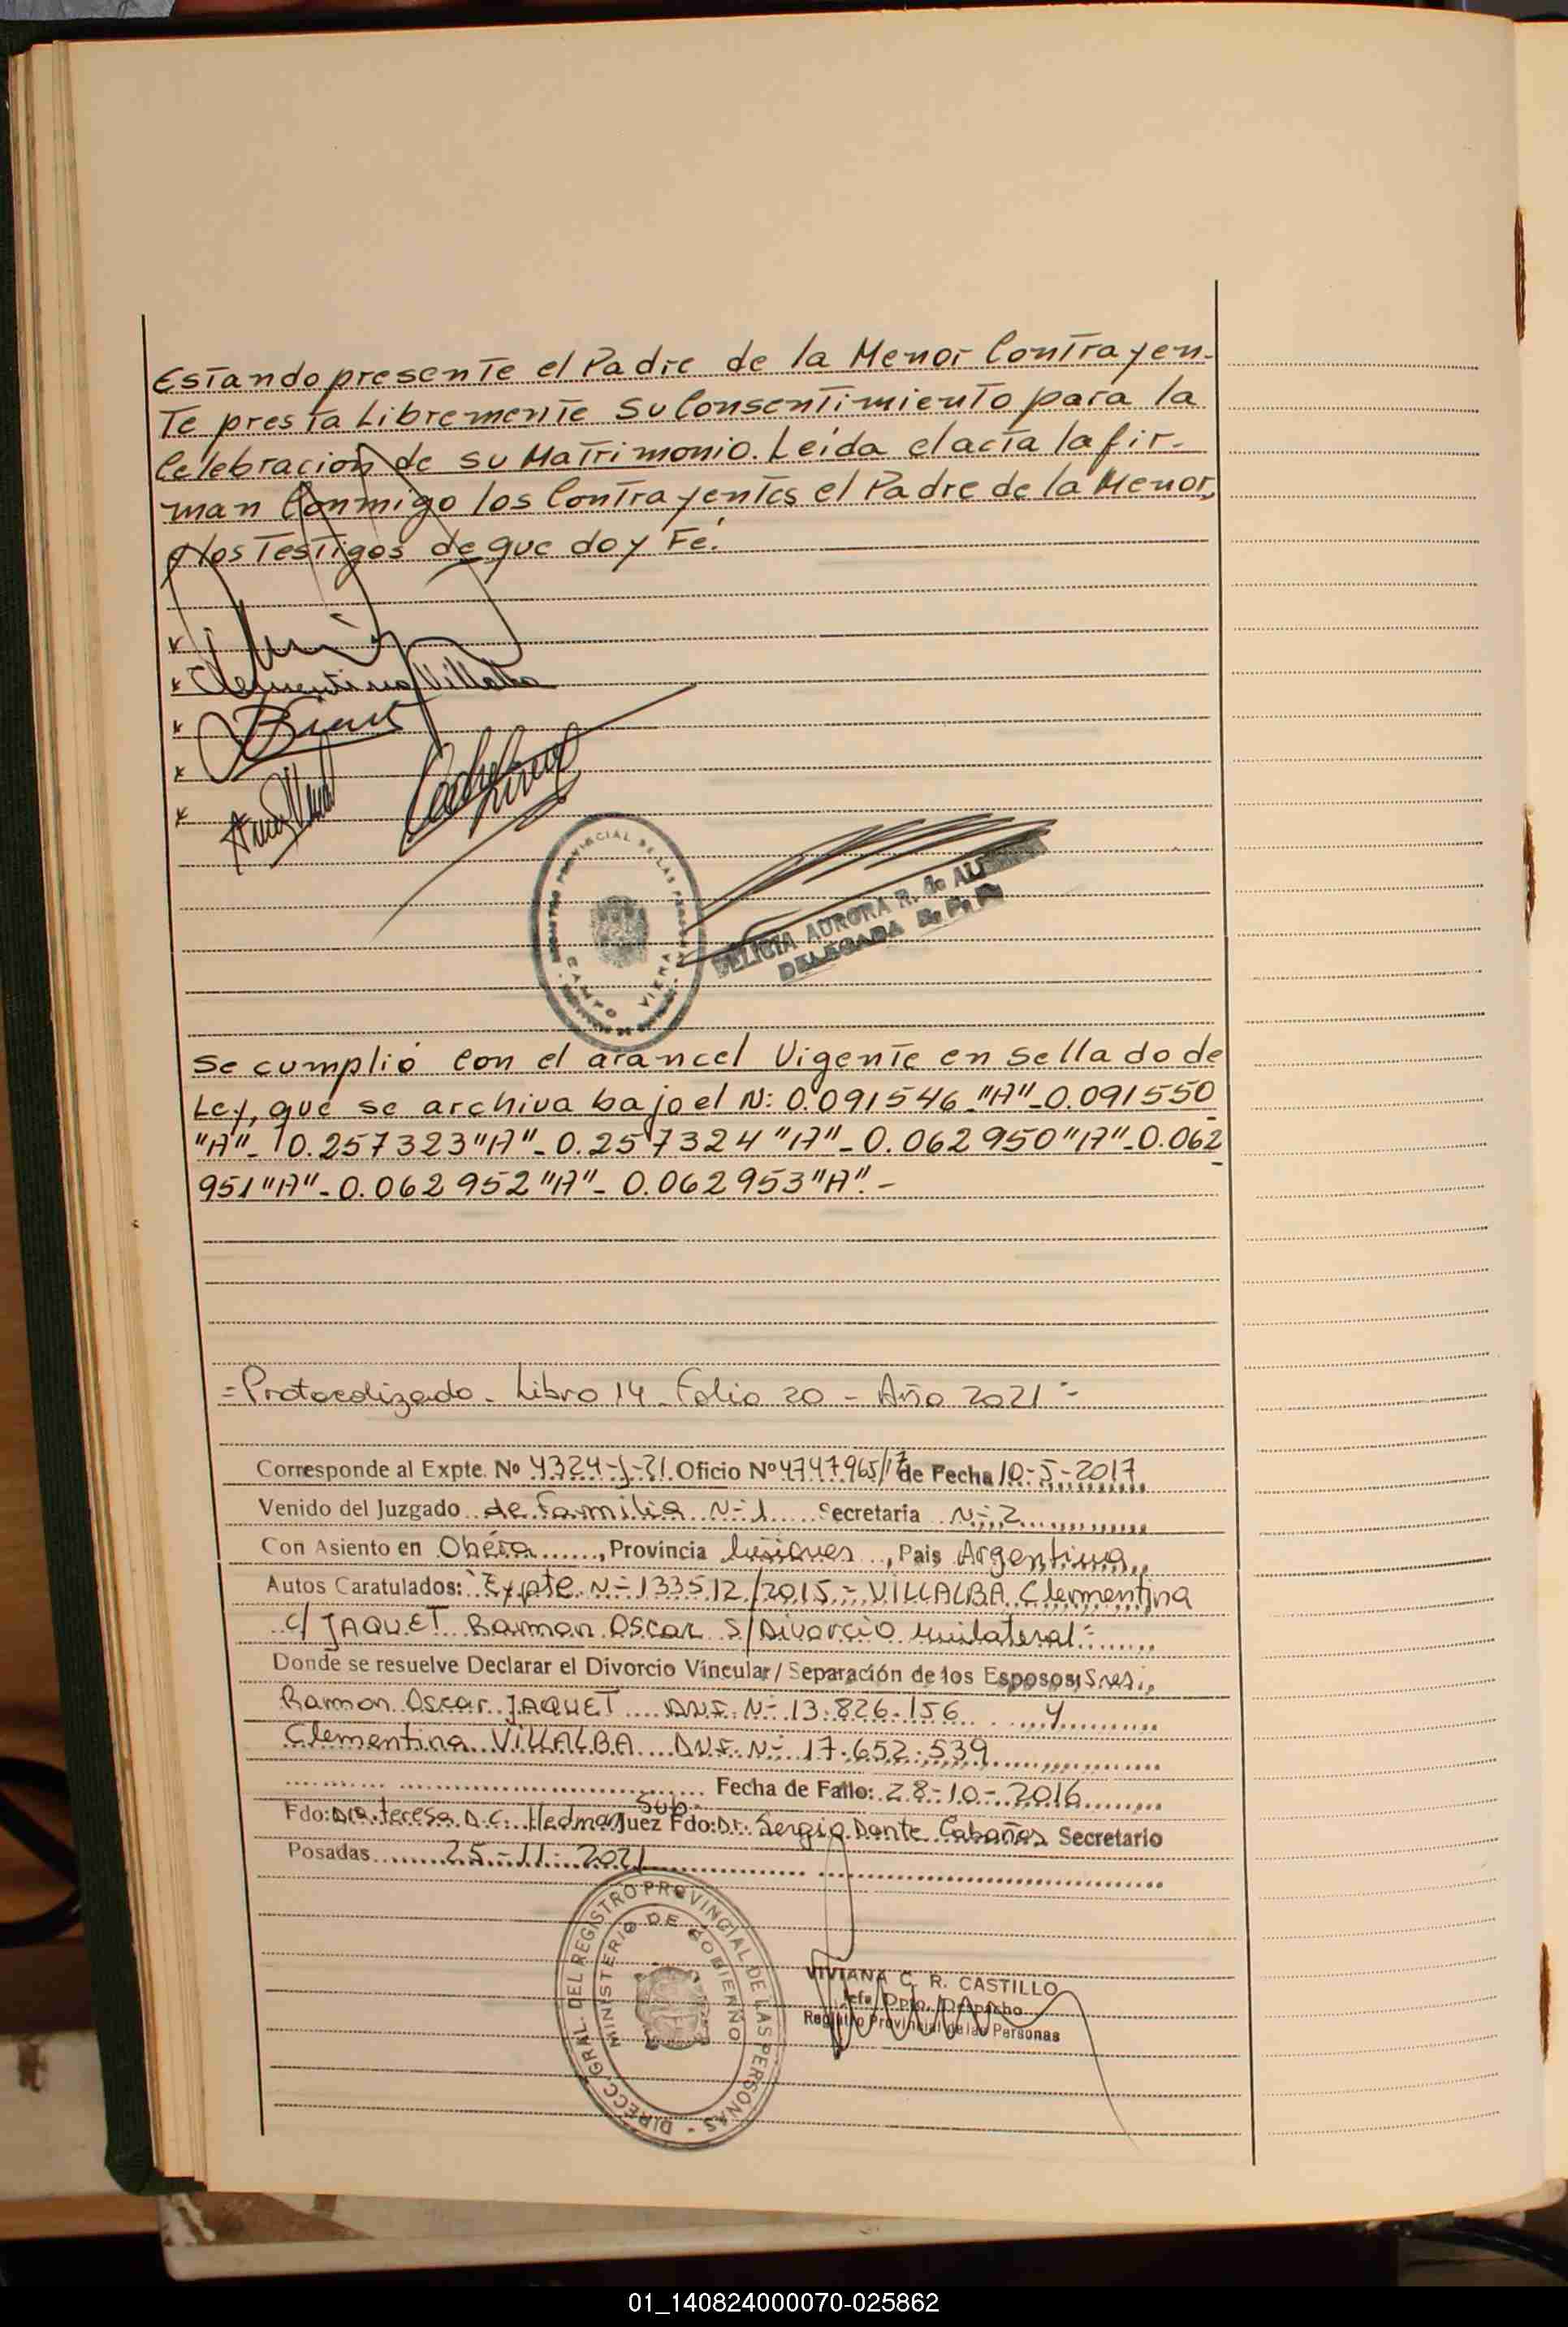 Estando presente el Padre de la Menor Contrayen-
te presta Libremente su Consentimiento para la
Celebracion de su Matrimonio. Leída el acta la fir-
man Conmigo los Contrayentes el Padre de la Menor,
y los Testigos de que doy Fé.
Clementina Villalba
REGISTRO PROVINCIAL DE LAS PERSONAS
CAMPO VIERA
FELICIA AURORA R. de
DELEGADA R. P. P.
Se cumplió con el arancel Vigente en sellado de
Ley, que se archiva bajo el N: 0.091546 "A"-0.091550
"A"- 0.257323 "A"- 0.257324 "A"- 0.062950 "A"-0.062
951 "A"- 0.062952 "A"- 0.062953 "A".-
=Protocolizado - Libro 14 - Folio 20 - Año 2021=
Corresponde al Expte. Nº 4324-J-21. Oficio Nº 4747965/17 de Fecha 10-5-2017
Venido del Juzgado de Familia Nº 1 Secretaria Nº 2
Con Asiento en Oberá, Provincia Misiones, Pais Argentina
Autos Caratulados: "Expte Nº 133512/2015 - VILLALBA Clementina
c/ JAQUET Ramon Oscar S/Divorcio Unilateral
Donde se resuelve Declarar el Divorcio Vincular / Separación de los Esposos: Sres.
Ramon Oscar JAQUET D.N.I. Nº 13.826.156 y
Clementina VILLALBA D.N.I. Nº 17.652.539
Fecha de Fallo: 28-10-2016
Fdo: Dra. Teresa D.C. Hedman Juez Sub. Fdo: Dr. Sergio Dante Cabañas Secretario
Posadas 25-11-2021
DIRECC. GRAL. DEL REGISTRO PROVINCIAL DE LAS PERSONAS -
MINISTERIO DE GOBIERNO
VIVIANA C. R. CASTILLO
Jefa Dpto. Despacho
Registro Provincial de las Personas
01_140824000070-025862